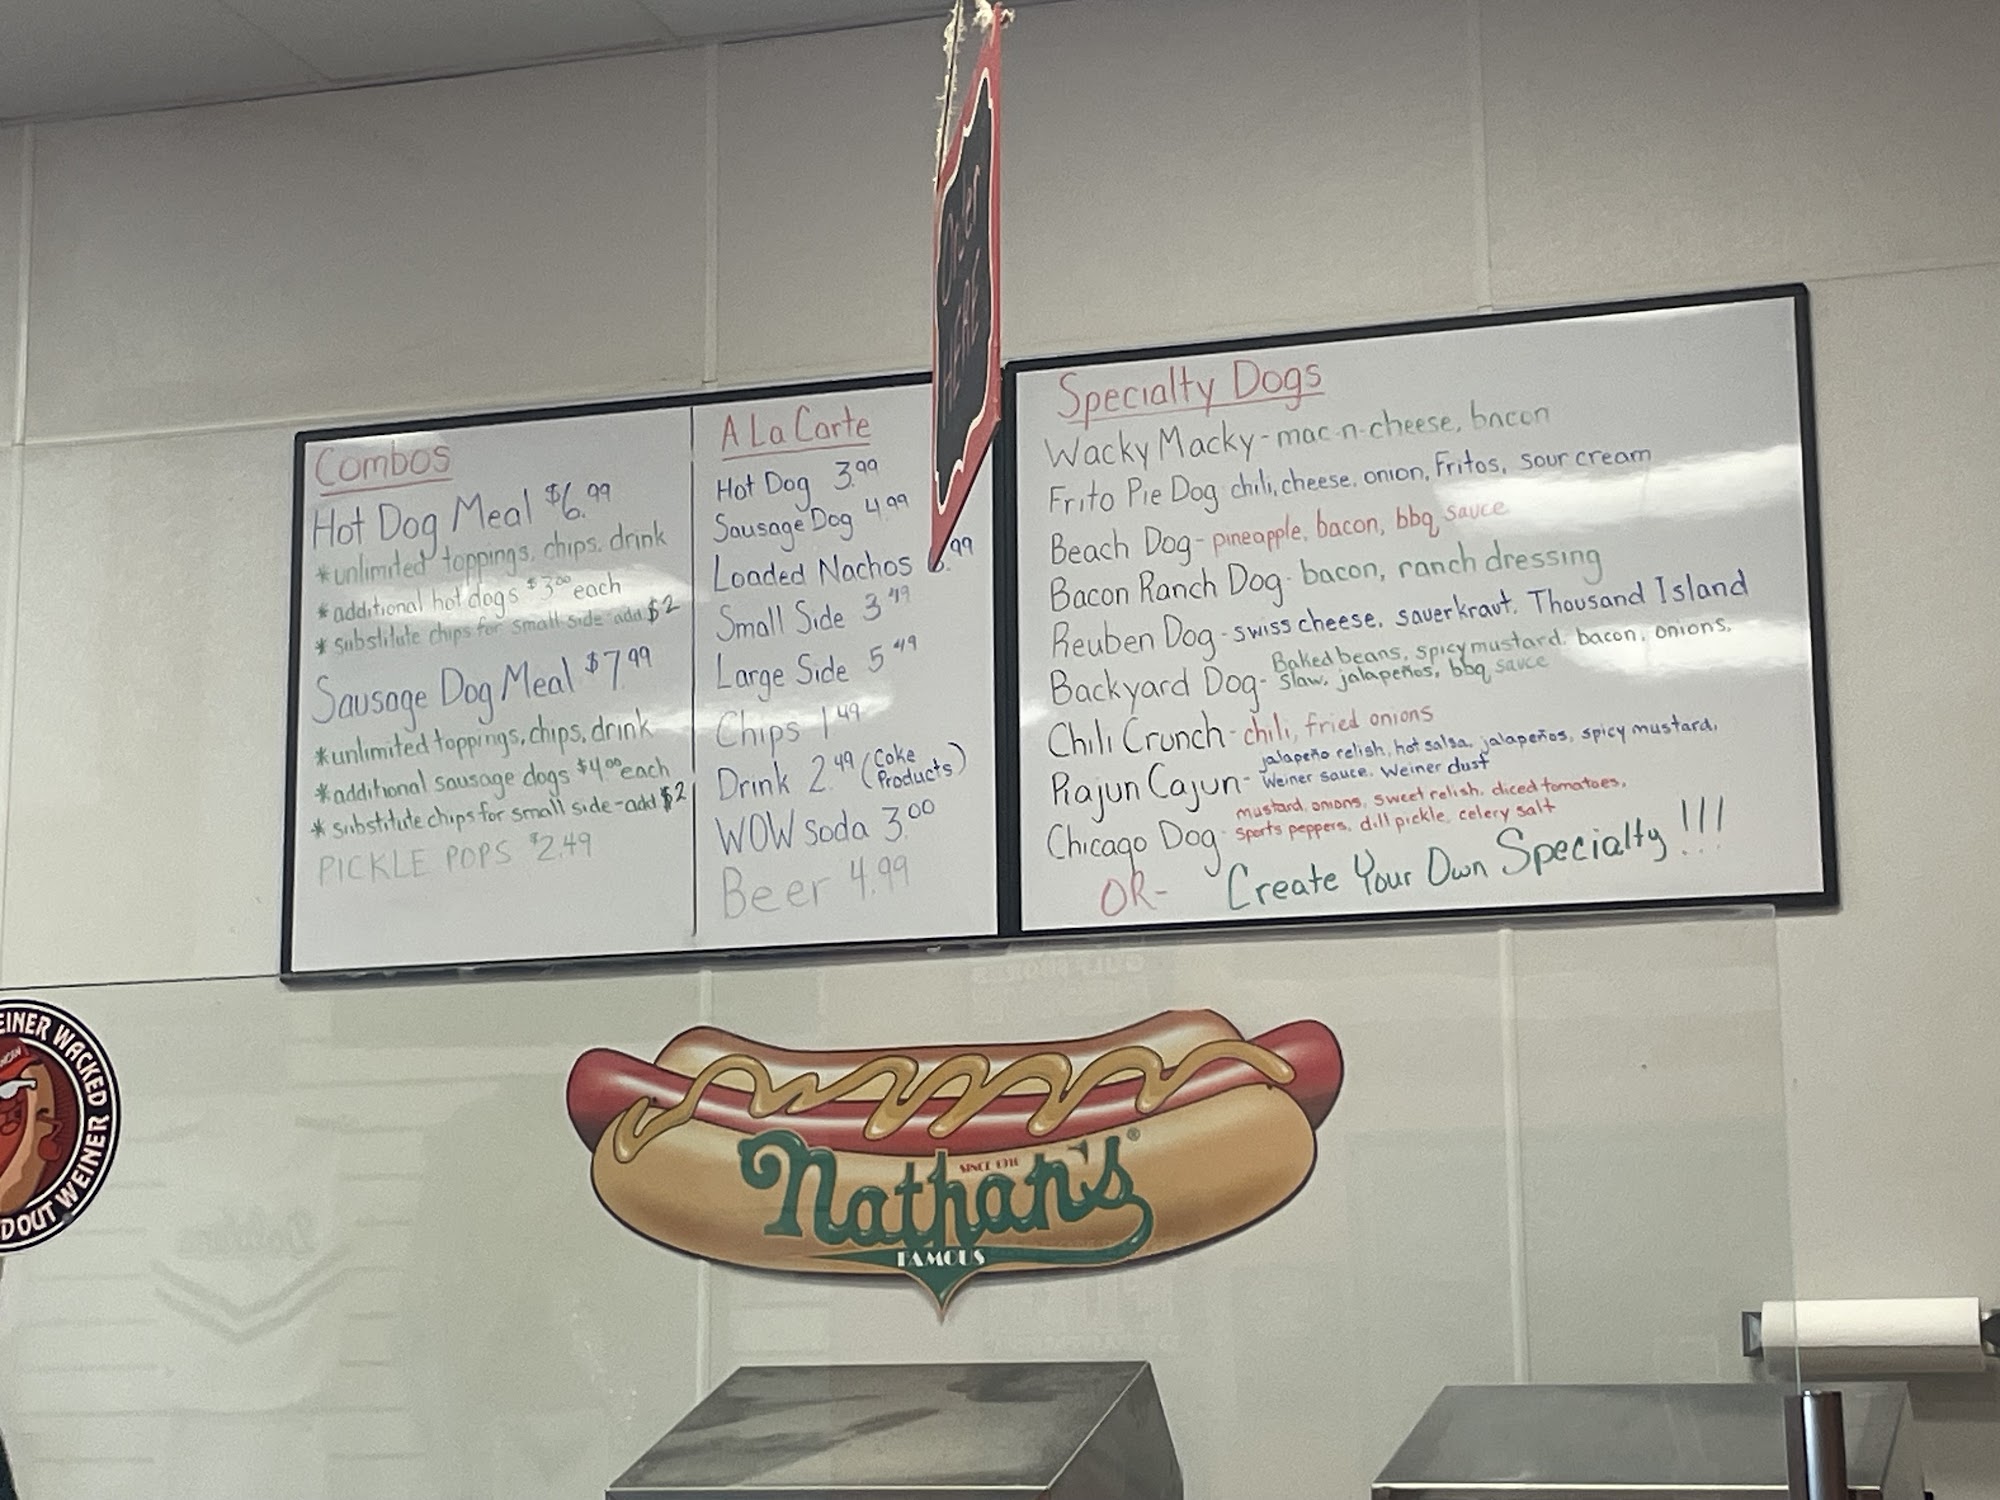 Order
HERE
Combos
Hot Dog Meal $6.99
*unlimited toppings, chips, drink
*additional hot dogs $3.00 each
*substitute chips for small side-add $2
Sausage Dog Meal $7.99
*unlimited toppings, chips, drink
*additional sausage dogs $4.00 each
*substitute chips for small side-add $2
PICKLE POPS $2.49
A La Carte
Hot Dog 3.99
Sausage Dog 4.99
Loaded Nachos .99
Small Side 3.49
Large Side 5.49
Chips 1.49
Drink 2.49 (Coke
Products)
WOW soda 3.00
Beer 4.99
Specialty Dogs
Wacky Macky-mac-n-cheese, bacon
Frito Pie Dog chili, cheese, onion, Fritos, sour cream
Beach Dog-pineapple, bacon, bbq sauce
Bacon Ranch Dog-bacon, ranch dressing
Reuben Dog-swiss cheese, sauerkraut, Thousand Island
Backyard Dog-Baked beans, spicy mustard, bacon, onions,
slaw, jalapeños, bbq sauce
Chili Crunch-chili, fried onions
Rajun Cajun-jalapeño relish, hot salsa, jalapeños, spicy mustard,
Weiner sauce, Weiner dust
Chicago Dog-mustard, onions, sweet relish, diced tomatoes,
sports peppers, dill pickle, celery salt
OR- Create Your Own Specialty!!!
EINER WACKED
DOUT WEINER
SINCE 1916
Nathan's®
FAMOUS